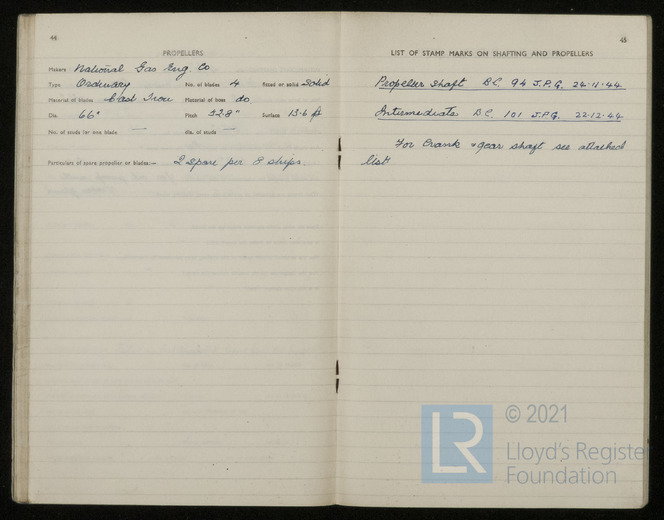 44
PROPELLERS
Makers National Gas Eng. Co
Type Ordinary No. of blades 4 fitted or solid Solid
Material of blades Cast Iron Material of boss do
Dia. 66" Pitch 52.8" Surface 13.6 ft
No. of studs for one blade — dia. of studs —
Particulars of spare propeller or blades:— 2 spare per 8 ships.
45
LIST OF STAMP MARKS ON SHAFTING AND PROPELLERS
Propeller Shaft B.C. 94 J.P.G. 24-11-44
Intermediate B.C. 101 J.P.G. 22-12-44
For Crank & gear shaft see attached
list
LR
© 2021
Lloyd's Register
Foundation